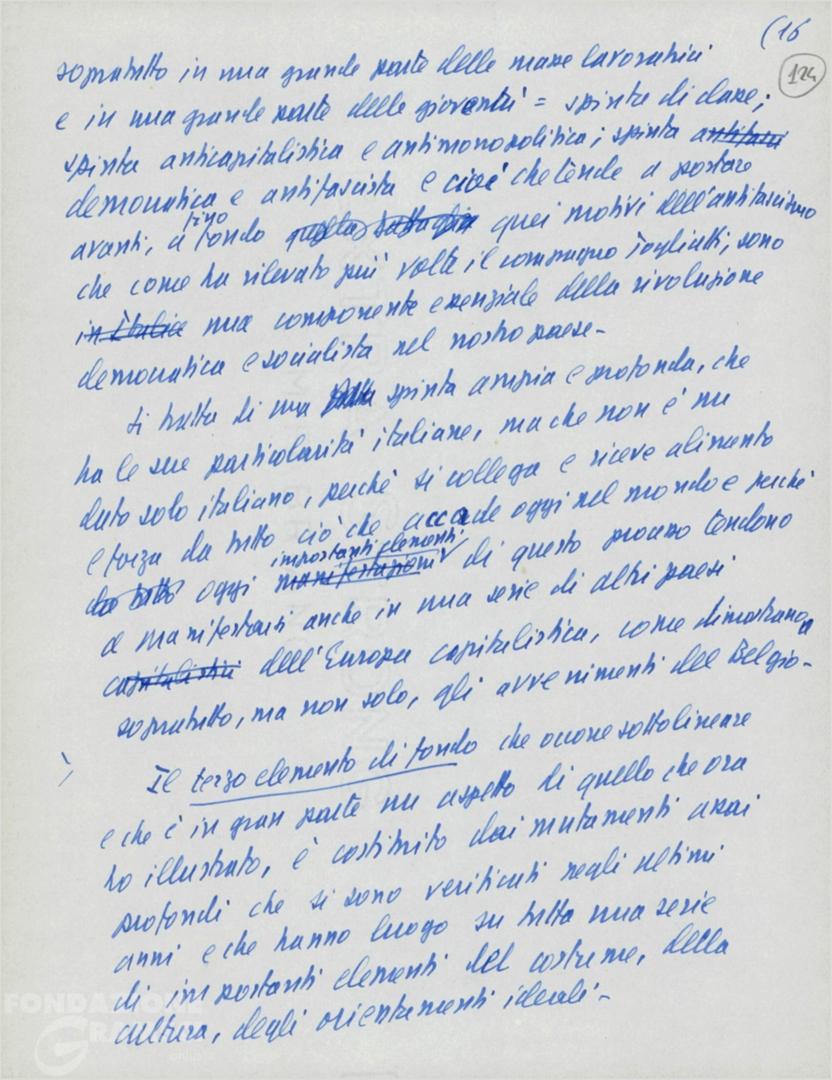 (16
124
sopratutto in una grande parte delle masse lavoratrici
e in una grande parte delle gioventù = spinta di classe;
spinta anticapitalistica e antimonopolitica; spinta antifasci
democratica e antifascista e cioè che tende a portare
avanti, a fino fondo quella battaglia quei motivi dell'antifascismo
che come ha rilevato più volte il compagno Togliatti, sono
in Italia una componente essenziale della rivoluzione
democratica e socialista nel nostro paese-
Si tratta di una spinta ampia e profonda, che
ha le sue particolarità italiane, ma che non è un
dato solo italiano, perchè si collega e riceve alimento
e forza da tutto ciò che accade oggi nel mondo e perchè
importanti elementi
da tutto oggi manifestazioni di questo processo tendono
a manifestarsi anche in una serie di altri paesi
capitalistici dell'Europa capitalistica, come dimostrano,
sopratutto, ma non solo, gli avvenimenti del Belgio-
Il terzo elemento di fondo che occorre sottolineare
e che è in gran parte un aspetto di quello che ora
ho illustrato, è costituito dai mutamenti assai
profondi che si sono verificati negli ultimi
anni e che hanno luogo su tutta una serie
di importanti elementi del costume, della
cultura, degli orientamenti ideali-
FONDAZIONE